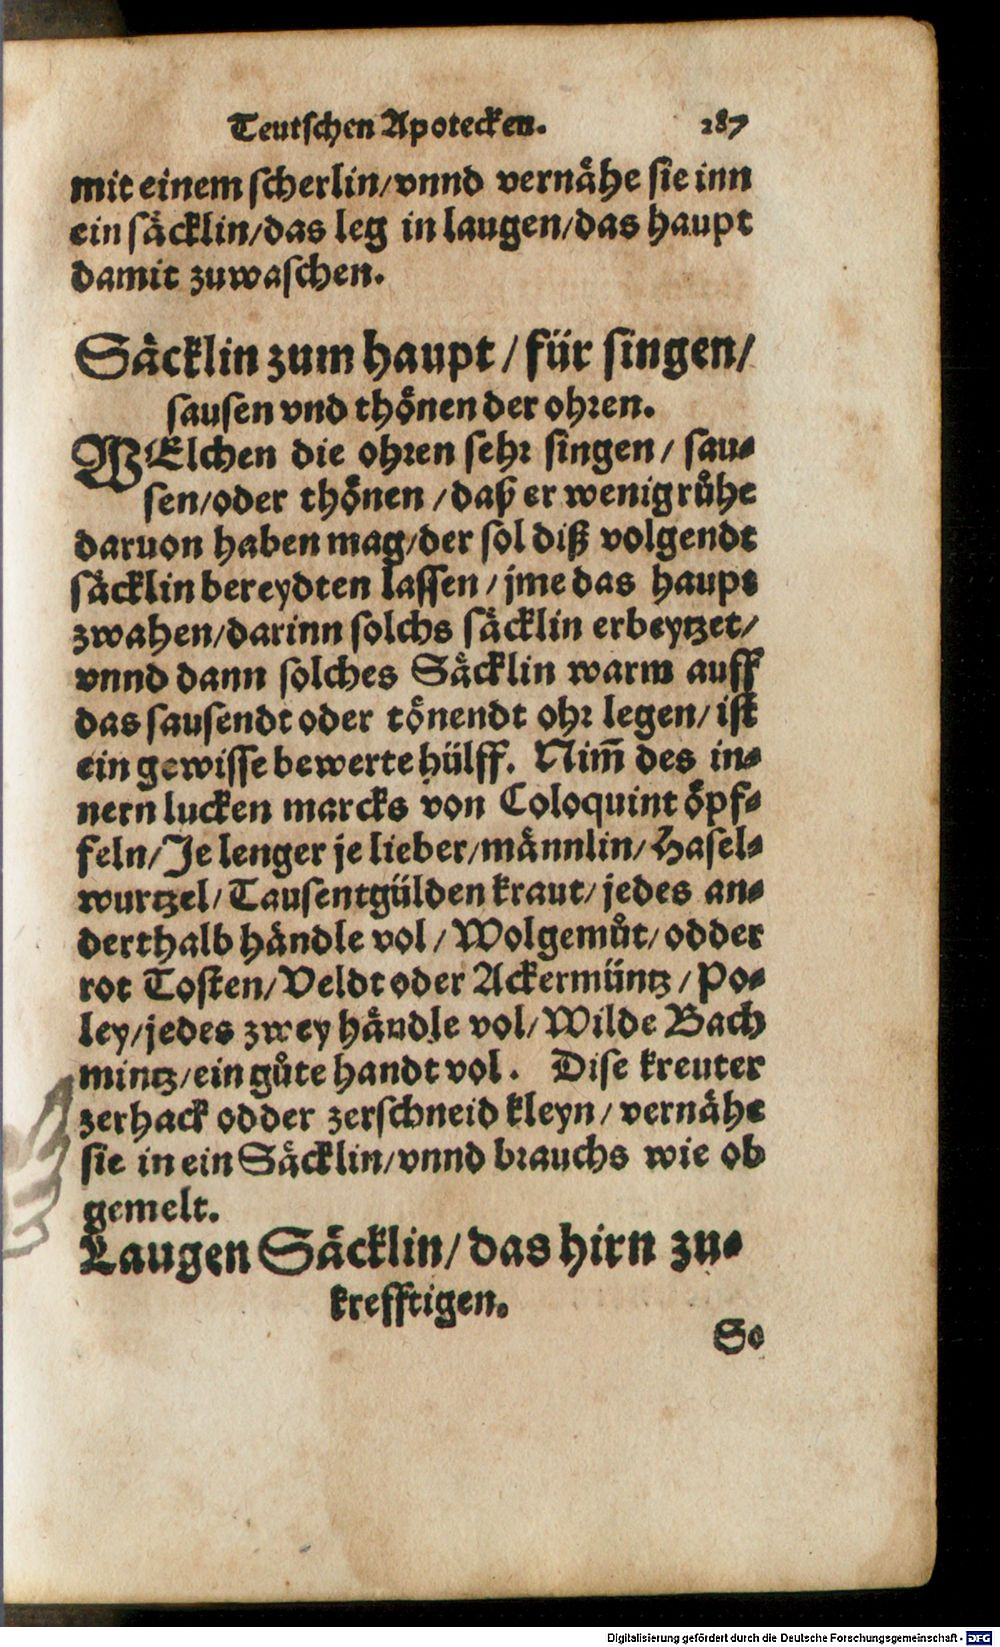 Teutschen Apotecken. 287
mit einem scherlin/vnnd vernähe sie inn
ein säcklin/das leg in laugen/das haupt
damit zuwaschen.
Säcklin zum haupt/für singen/
sausen vnd thönen der ohren.
WElchen die ohren sehr singen/sau-
sen/oder thönen/daß er wenig růhe
daruon haben mag/der sol diß volgendt
säcklin bereydten lassen/jme das haupt
zwahen/darinn solchs säcklin erbeytzet/
vnnd dann solches Säcklin warm auff
das sausendt oder tönendt ohr legen/ist
ein gewisse bewerte hülff. Nim̃ des in-
nern lucken marcks von Coloquint öpf-
feln/Je lenger je lieber/männlin/Hasel-
wurtzel/Tausentgülden kraut/jedes an-
derthalb händle vol/Wolgemůt/odder
rot Tosten/Veldt oder Ackermüntz/Po-
ley/jedes zwey händle vol/Wilde Bach
mintz/ein gůte handt vol. Dise kreuter
zerhack odder zerschneid kleyn/vernähe
sie in ein Säcklin/vnnd brauchs wie ob
gemelt.
Laugen Säcklin/das hirn zu-
krefftigen.
So
Digitalisierung gefördert durch die Deutsche Forschungsgemeinschaft - DFG